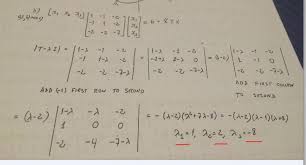 [x₁ x₂ x₃] [1 1 -2; 1 1 -2; -2 -2 -7] [x₁; x₂; x₃] = 6 - 8
|T-λI| = |1-λ 1 -2; 1 1-λ -2; -2 -2 -7-λ| = |1-λ 1 -2; λ -λ 0; -2 -2 -7-λ| = |1-λ 1 -2; 1 -1 0; -2 -2 -7-λ|
ADD (-1) FIRST ROW TO SECOND
ADD FIRST COLUMN
TO SECOND
= (λ-2) |1-λ -λ -2; 1 0 0; -2 -4 -7-λ| = -(λ-2)(λ²+7λ-8) = -(λ-2)(λ-1)(λ+8)
λ₁=1, λ₂=2, λ₃=-8